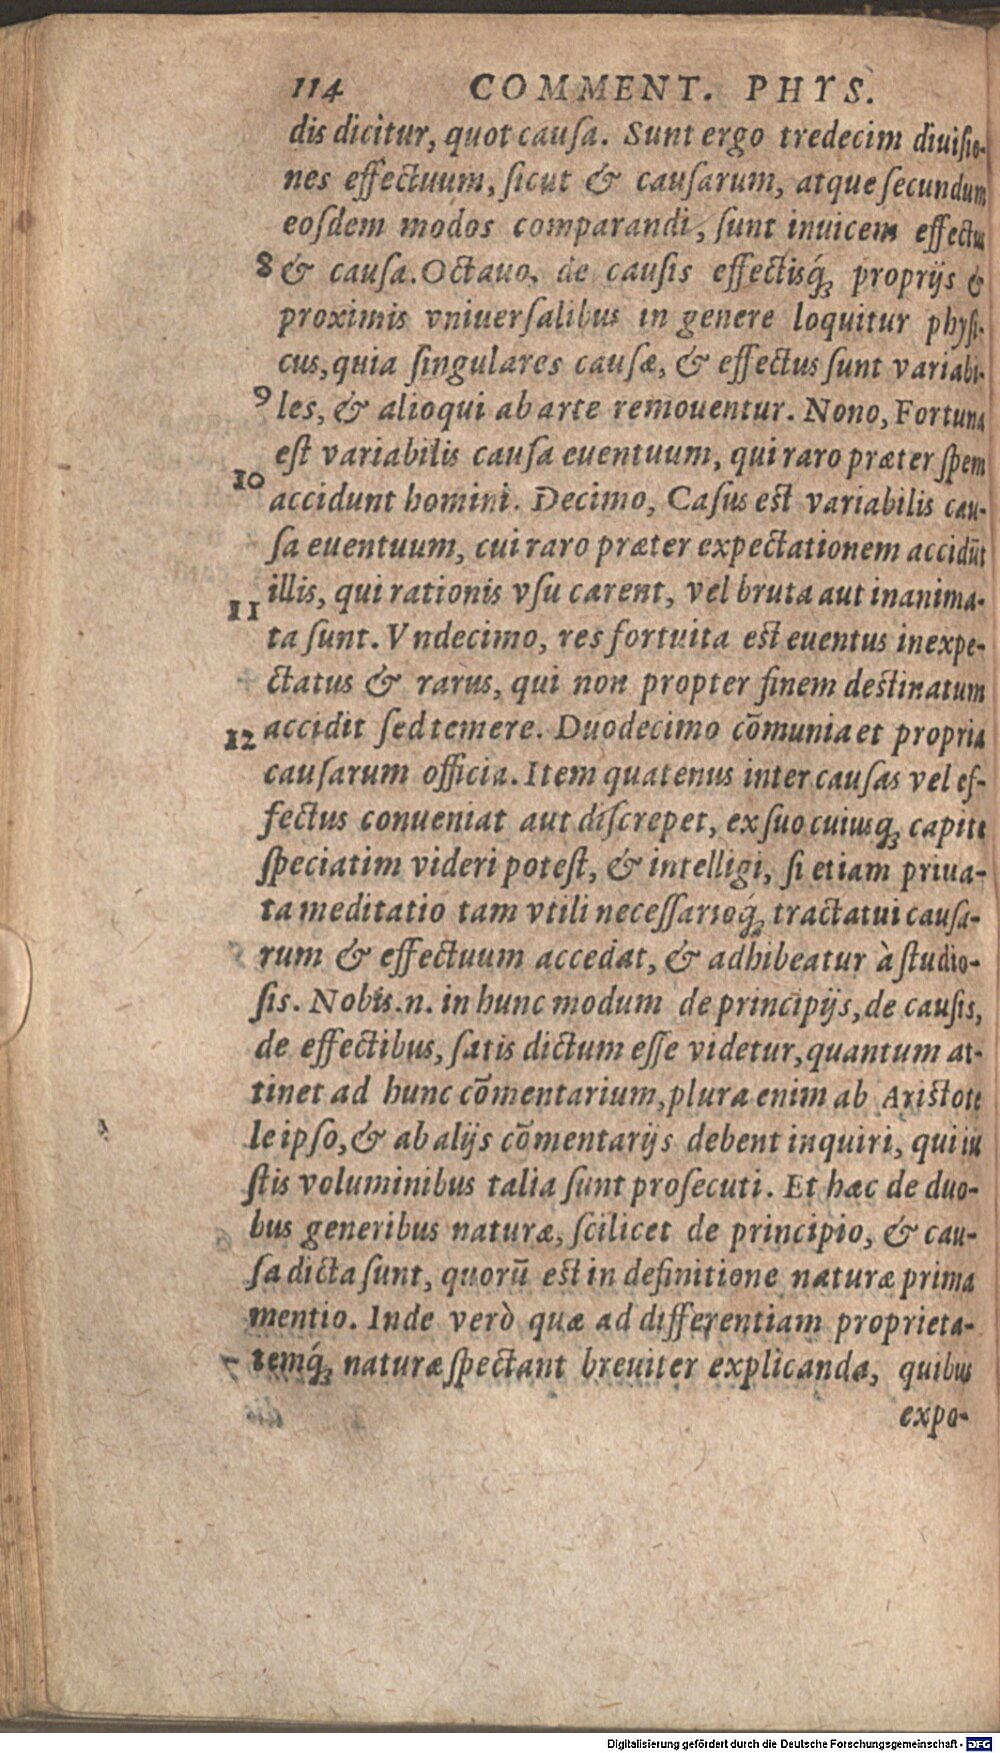 114 COMMENT. PHYS.
dis dicitur, quot causa. Sunt ergo tredecim diuisio-
nes effectuum, sicut & causarum, atque secundum
eosdem modos comparandi, sunt inuicem effectus
8 & causa. Octauo, de causis effectisq́ꝫ proprijs &
proximis vniuersalibus in genere loquitur physi-
cus, quia singulares causæ, & effectus sunt variabi-
9 les, & alioqui ab arte remouentur. Nono, Fortuna
est variabilis causa euentuum, qui raro præter spem
10 accidunt homini. Decimo, Casus est variabilis cau-
sa euentuum, cui raro præter expectationem accidūt
illis, qui rationis vsu carent, vel bruta aut inanima-
11 ta sunt. Vndecimo, res fortuita est euentus inexpe-
ctatus & rarus, qui non propter finem destinatum
12 accidit sed temere. Duodecimo cōmunia et propria
causarum officia. Item quatenus inter causas vel ef-
fectus conueniat aut discrepet, ex suo cuiusqꝫ capite
speciatim videri potest, & intelligi, si etiam priua-
ta meditatio tam vtili necessarioq́ꝫ tractatui causa-
rum & effectuum accedat, & adhibeatur à studio-
sis. Nobis.n. in hunc modum de principijs, de causis,
de effectibus, satis dictum esse videtur, quantum at-
tinet ad hunc cōmentarium, plura enim ab Aristote
le ipso, & ab alijs cōmentarijs debent inquiri, qui iu
stis voluminibus talia sunt prosecuti. Et hæc de duo-
bus generibus naturæ, scilicet de principio, & cau-
sa dicta sunt, quorū est in definitione naturæ prima
mentio. Inde verò quæ ad differentiam proprieta-
temq́ꝫ naturæ spectant breuiter explicanda, quibus
expo-
Digitalisierung gefördert durch die Deutsche Forschungsgemeinschaft - DFG